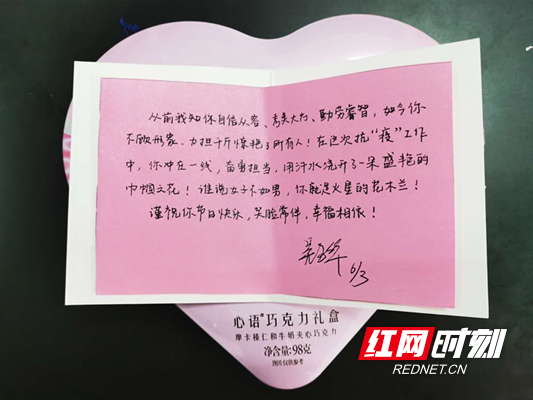 从前我知你自信从容、高贵大方、勤劳睿智，如今你
不顾形象、力担千斤惊艳了所有人！在这次抗“疫”工作
中，你冲在一线，奋勇担当，用汗水浇开了一朵盛艳的
巾帼之花！谁说女子不如男，你就是火星的花木兰！
谨祝你节日快乐，笑脸常伴，幸福相依！
3/3
心语®巧克力礼盒
摩卡榛仁和牛奶夹心巧克力
净含量:98克
图片仅供参考
红网时刻
REDNET.CN